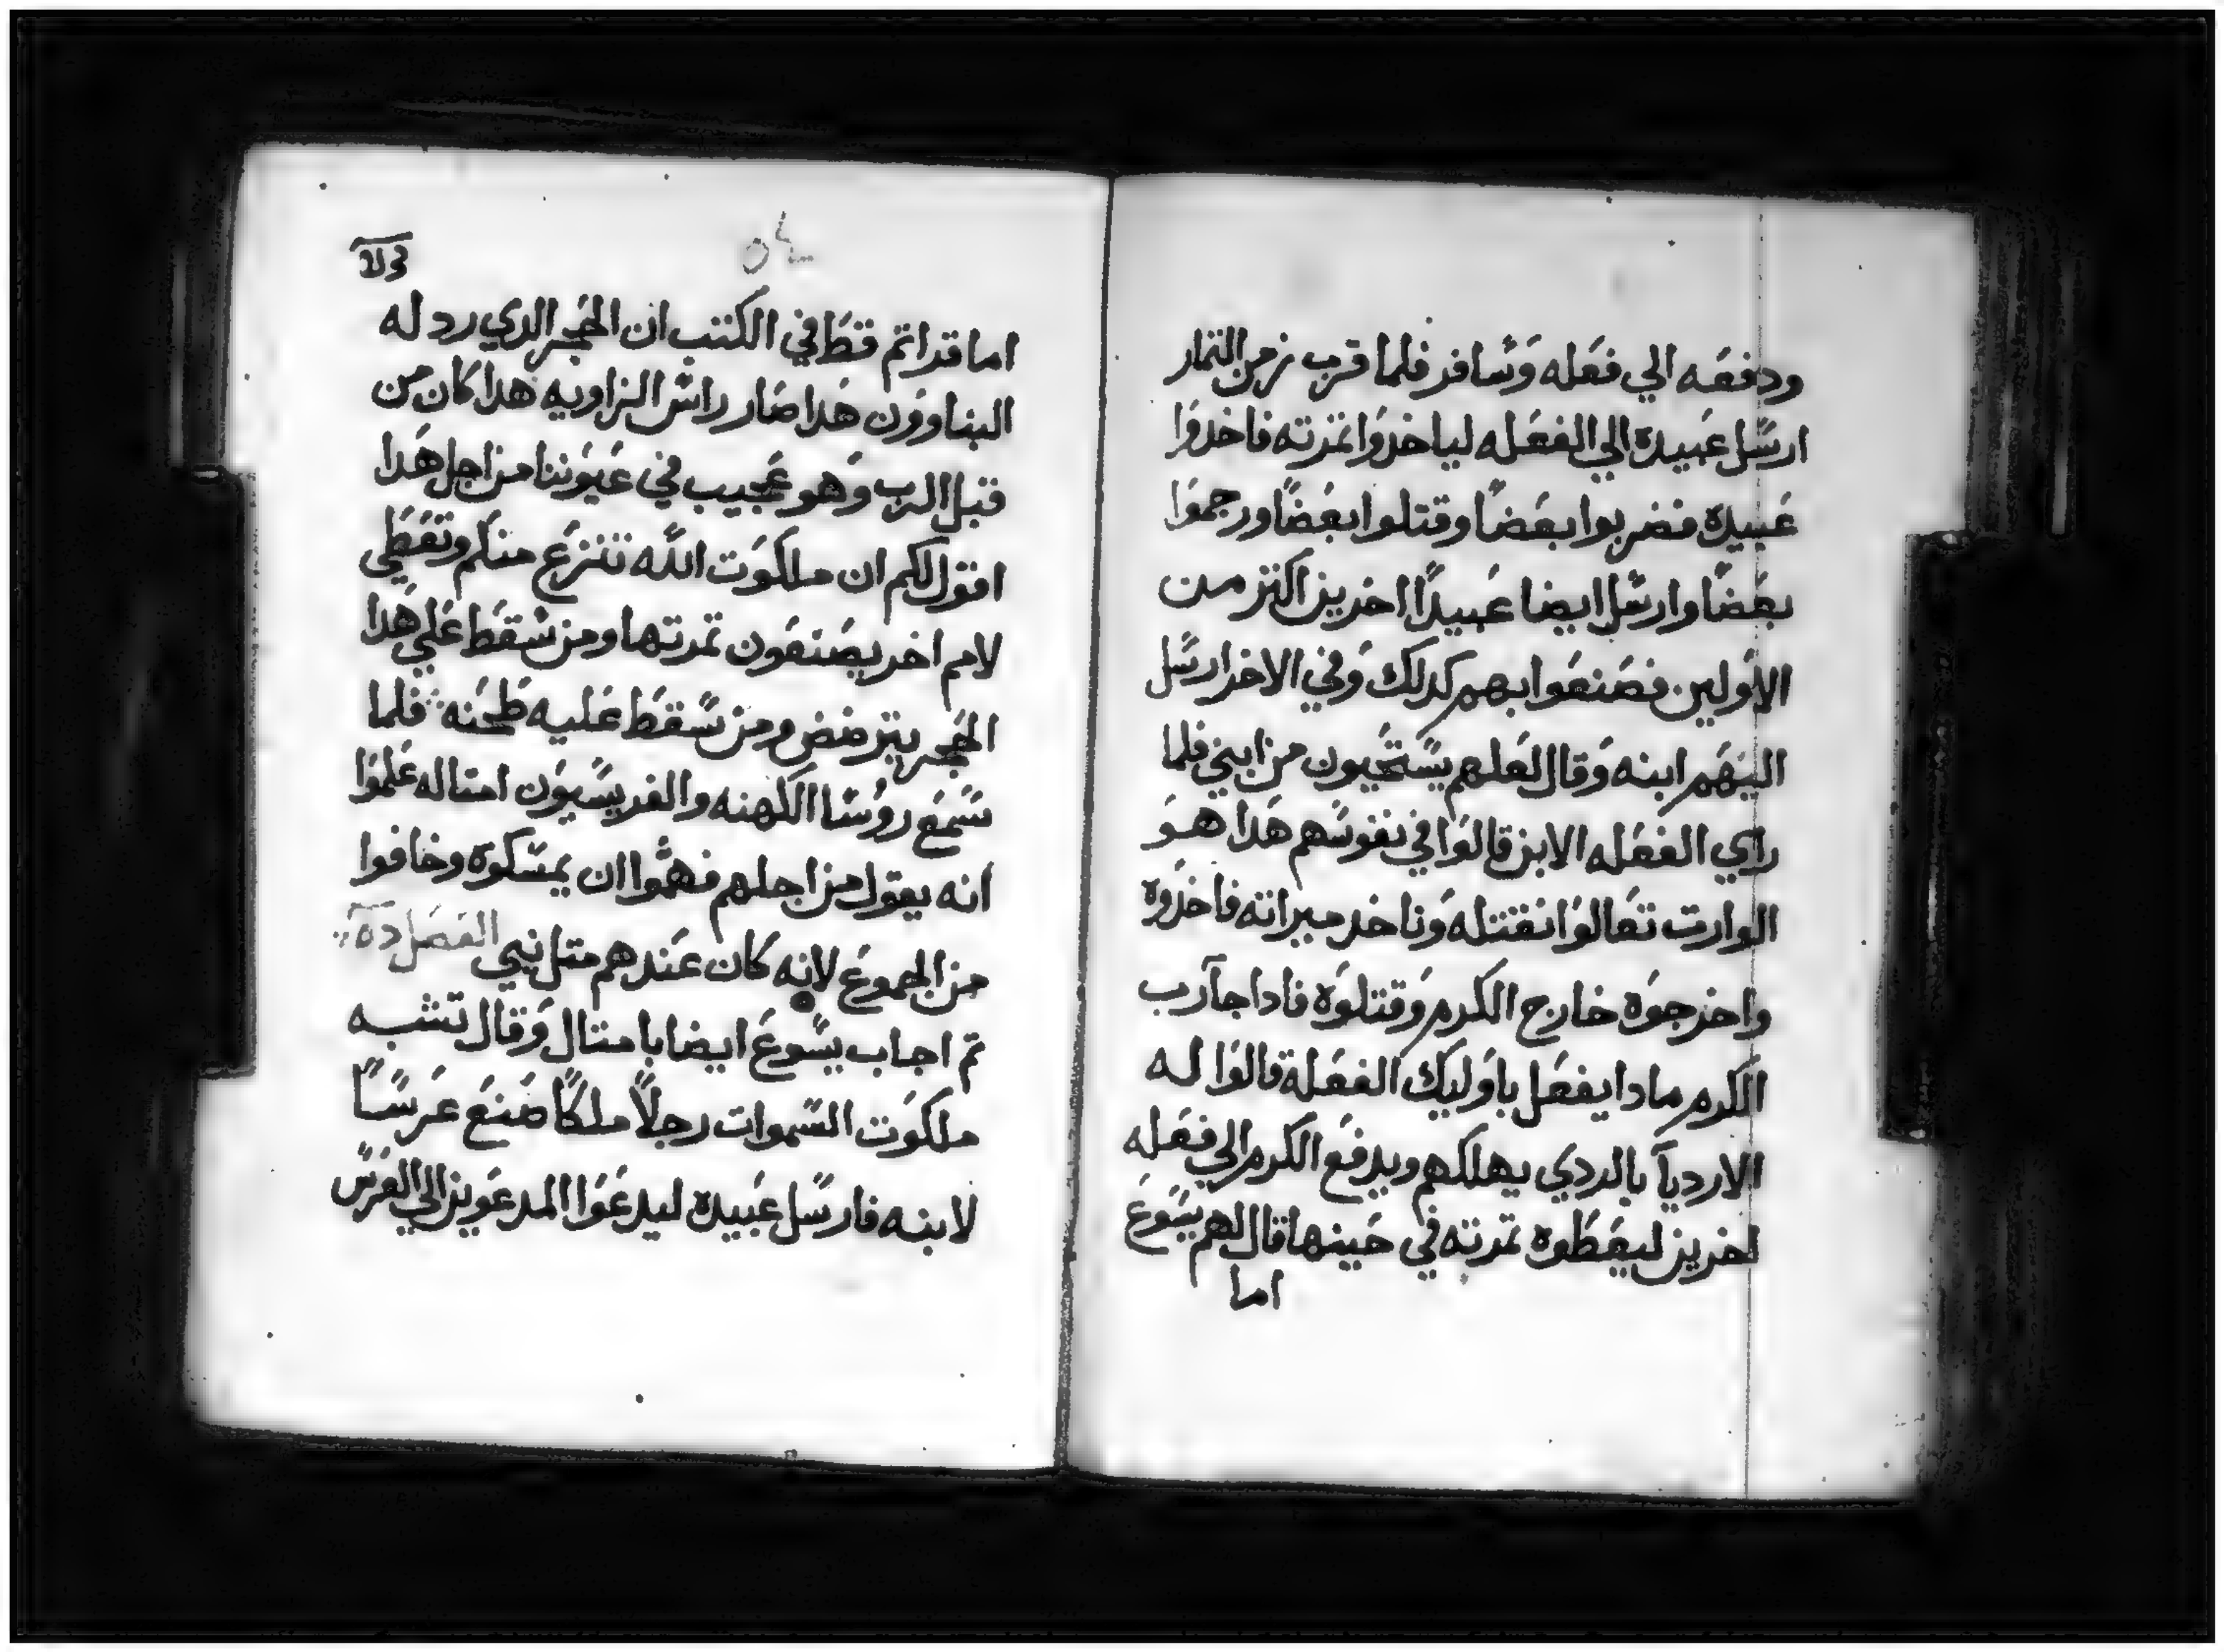 ودفعه الي فعله وسافر فلما قرب زمن التمار
ارسل عبيده الي الفعله لياخدوا تمرته فاخدوا
عبيده فضربوا بعضا وقتلوا بعضا ورجموا
بعضا وارسل ايضا عبيدا اخرين اكتر من
الاولين فصنعوا بهم كدلك وفي الاخر ارسل
اليهم ابنه وقال لعلهم يستحيون من ابني فلما
راي الفعله الابن قالوا في نفوسهم هدا هو
الوارت تعالوا نقتله وناخد ميراته فاخدوه
واخرجوه خارج الكرم وقتلوه فادا جآ رب
الكرم مادا يفعل باوليك الفعلة قالوا له
الارديآ بالردي يهلكهم ويدفع الكرم الي فعله
اخرين ليعطوه تمرته في حينها قال لهم يسوع
اما
٥٤
اما قداتم قط في الكتب ان الحجر الدي ردله
البناوون هدا صار راس الزاويه هدا كان من
قبل الرب وهو عجيب في عيوننا من اجل هدا
اقول لكم ان ملكوت الله تنزع منكم وتعطي
لامم اخر يصنعون تمرتها ومن سقط علي هدا
الحجر يترضض ومن سقط عليه طحنه فلما
سمع روسا الكهنه والفريسيون امتاله علموا
انه يقول من اجلهم فهموا ان يمسكوه وخافوا
من الجموع لانه كان عندهم متل نبي الفصل
تم اجاب يسوع ايضا بامتال وقال تشبه
ملكوت السموات رجلا ملكا صنع عرسا
لابنه فارسل عبيده ليدعوا المدعوين الي العرس